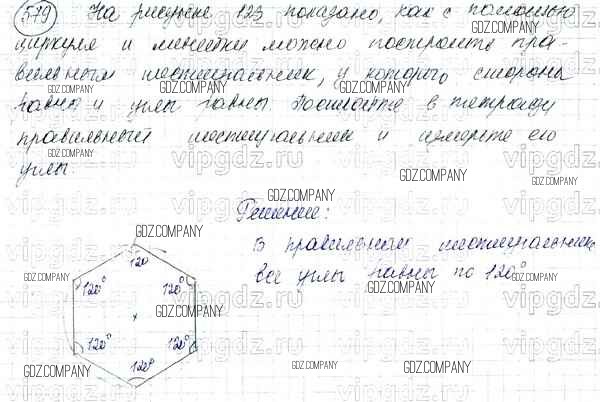 579 На рисунке 123 показано, как с помощью
циркуля и линейки можно построить пра-
вильный шестиугольник, у которого стороны
равны и углы равны. Постройте в тетради
правильный шестиугольник и измерьте его
углы.
Решение:
В правильном шестиугольнике
все углы равны по 120°
120
120° 120°
120° 120°
120°
GDZ.COMPANY
vipgdz.ru